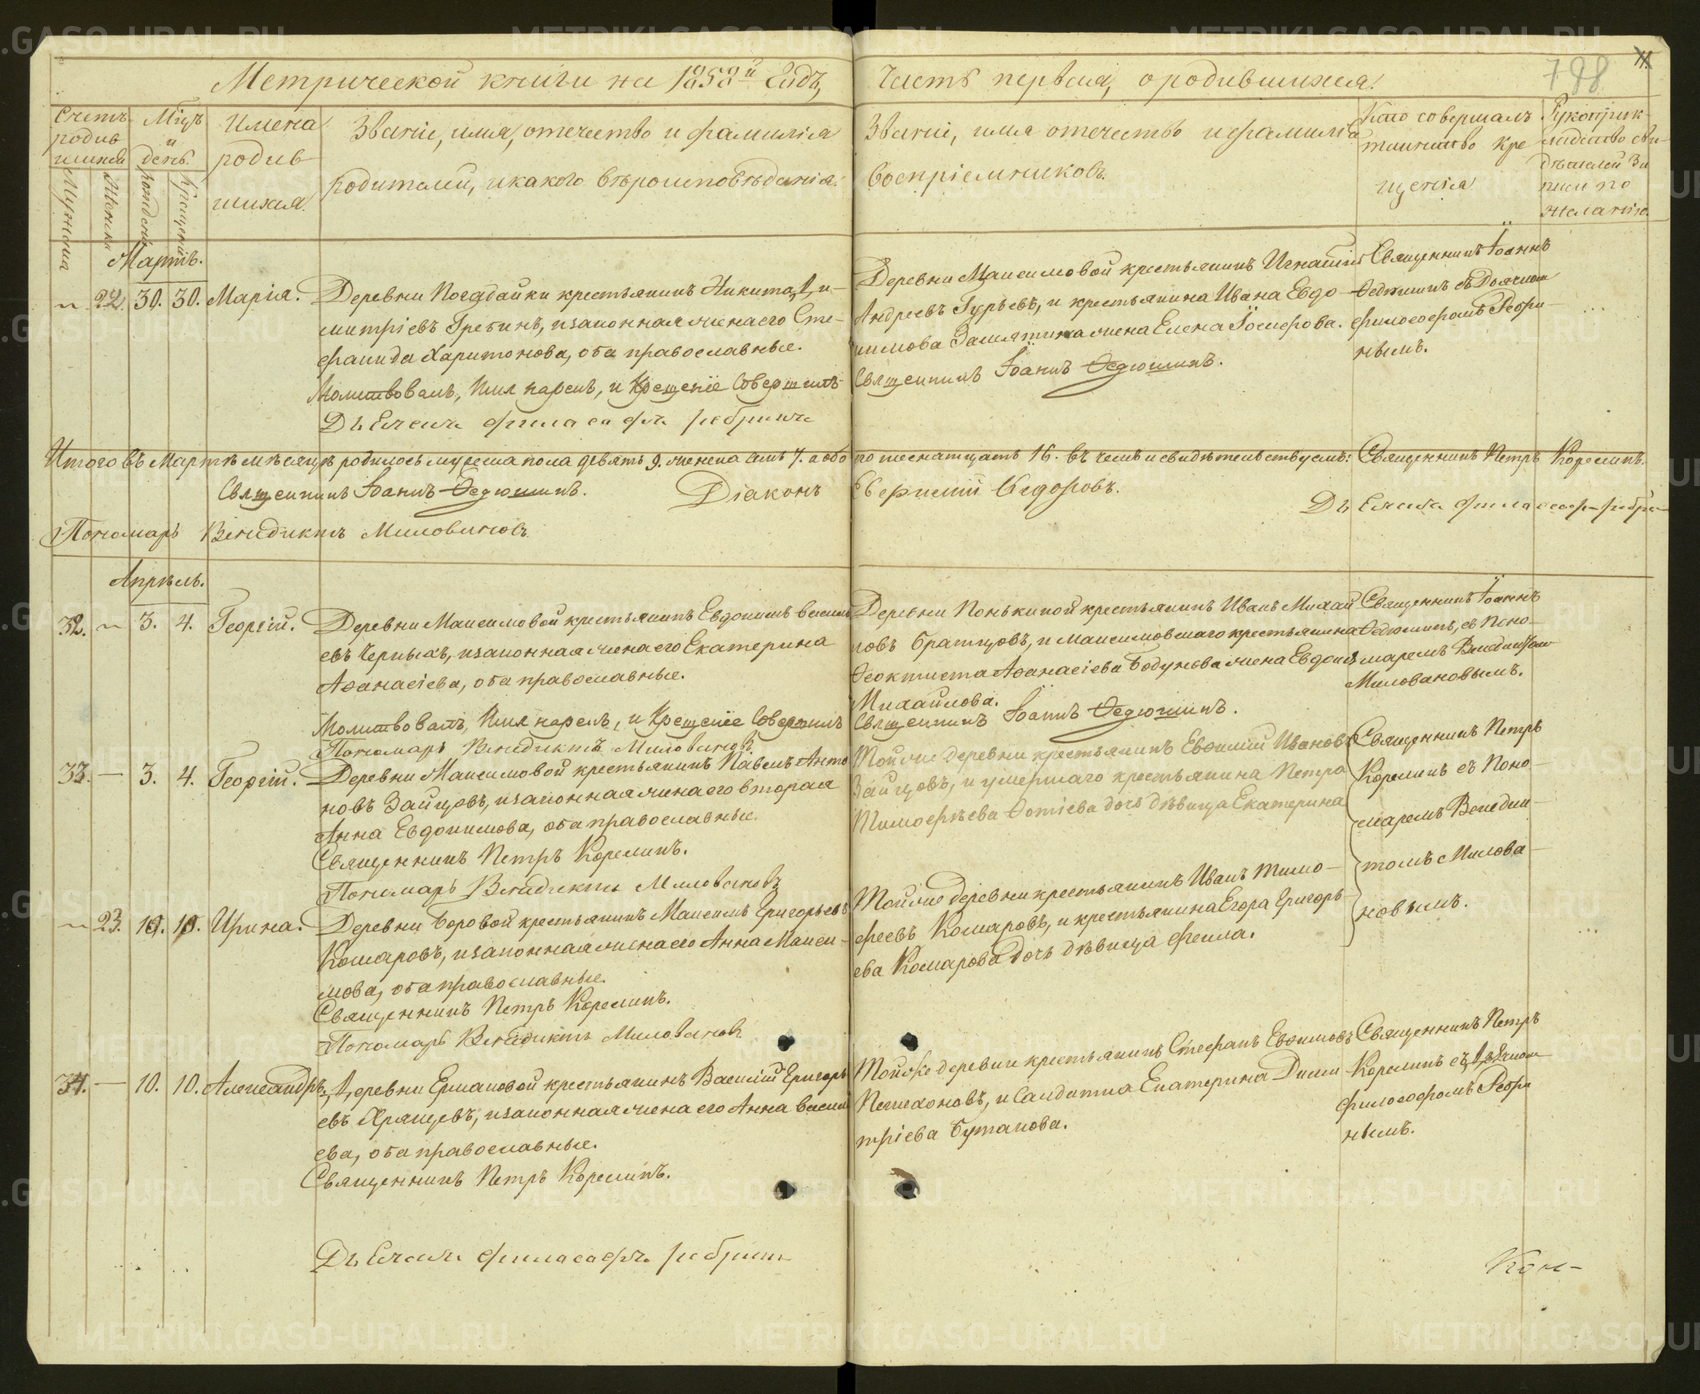 Метрической книги на 1858й Годъ,
Часть первая, о родившихся.
798
11.
Счетъ родившихся
Мужеска
Женска
Мѣсяцъ и день
рожденія
крещенія
Имена родившихся.
Званіе, имя, отечество и фамилія
родителей, и какого вѣроисповѣданія.
Званіе, имя отечество и фамилія
воспріемниковъ.
Кто совершалъ
таинство кре
щенія
Рукоприк-
ладство сви-
дѣтелей за
писи по
желанію.
Мартъ.
22. 30. 30. Марія.
Деревни Погадайки крестьянинъ Никита Ди-
митріевъ Гребинъ, и законная жена его Сте-
фанида Харитонова, оба православные.
Молитвовалъ, Имя нарекъ, и Крещеніе Совершилъ
Дьячекъ философъ
Деревни Максимовой крестьянинъ Игнатій
Андреевъ Гурьевъ, и крестьянина Ивана Евдо-
кимова Замятина жена Елена
Священникъ Іоаннъ Ѳедюшинъ.
Священникъ Іоаннъ
Ѳедюшинъ съ Дьячкомъ
философомъ Ребри-
нымъ.
Итого въ Мартѣ мѣсяцѣ родилось мужеска пола девять 9. женска семь 7. а обо
его шеснатцать 16. въ чемъ и свидѣтельствуемъ: Священникъ Петръ Корелинъ.
Священникъ Іоаннъ Ѳедюшинъ. Діаконъ
Ѳедоровъ.
Дьячекъ философъ
Пономарь Венедиктъ Миловановъ
Апрѣль.
32. 3. 4. Георгій.
Деревни Максимовой крестьянинъ Евдокимъ Василь
евъ Черныхъ, и законная жена его Екатерина
Аѳанасіева, оба православные.
Молитвовалъ, Имя нарекъ, и Крещеніе Совершилъ
Пономарь Венедиктъ Миловановъ
Деревни Понькиной крестьянинъ Иванъ Михай
ловъ Братцовъ, и Максимовскаго крестьянина
Ѳеоктиста Аѳанасіева Бодунова жена Евдокія
Михайлова.
Священникъ Іоаннъ Ѳедюшинъ.
Священникъ Іоаннъ
Ѳедюшинъ, съ Поно-
маремъ Венедиктомъ
Миловановымъ.
33. — 3. 4. Георгій.
Деревни Максимовой крестьянинъ Павелъ Анто
новъ Зайцовъ, и законная жена его вторая
Анна Евдокимова, оба православные.
Священникъ Петръ Корелинъ.
Пономарь Венедиктъ Миловановъ
Тойже деревни крестьянинъ Евѳимій Ивановъ
Зайцовъ, и умершаго крестьянина Петра
Тимоѳѣева Ѳотіева дочь дѣвица Екатерина
Священникъ Петръ
Корелинъ съ Поно-
маремъ Венедик-
томъ Милова-
новымъ.
23. 10. 10. Ирина.
Деревни Боровой крестьянинъ Максимъ Григорьевъ
Комаровъ, и законная жена его Анна Макси-
мова, оба православные.
Священникъ Петръ Корелинъ.
Пономарь Венедиктъ Миловановъ
Тойже деревни крестьянинъ Иванъ Тимо-
феевъ Комаровъ, и крестьянина Егора Григорь-
ева Комарова дочь дѣвица Фекла.
34. — 10. 10. Александръ.
Деревни Ермаковой крестьянинъ Василій Григорь
евъ Хрящевъ, и законная жена его Анна Василь
ева, оба православные.
Священникъ Петръ Корелинъ.
Дьячекъ философъ
Тойже деревни крестьянинъ Стефанъ Евѳимовъ
и Солдатка Екатерина Дими
тріева Бутакова.
Священникъ Петръ
Корелинъ съ Дьячкомъ
философомъ Ребри
нымъ.
Ком-
METRIKI.GASO-URAL.RU